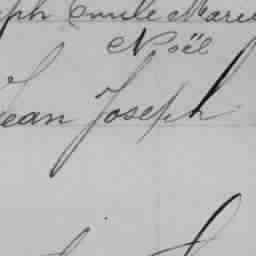 eph Emile Marie
Noël
Jean Joseph